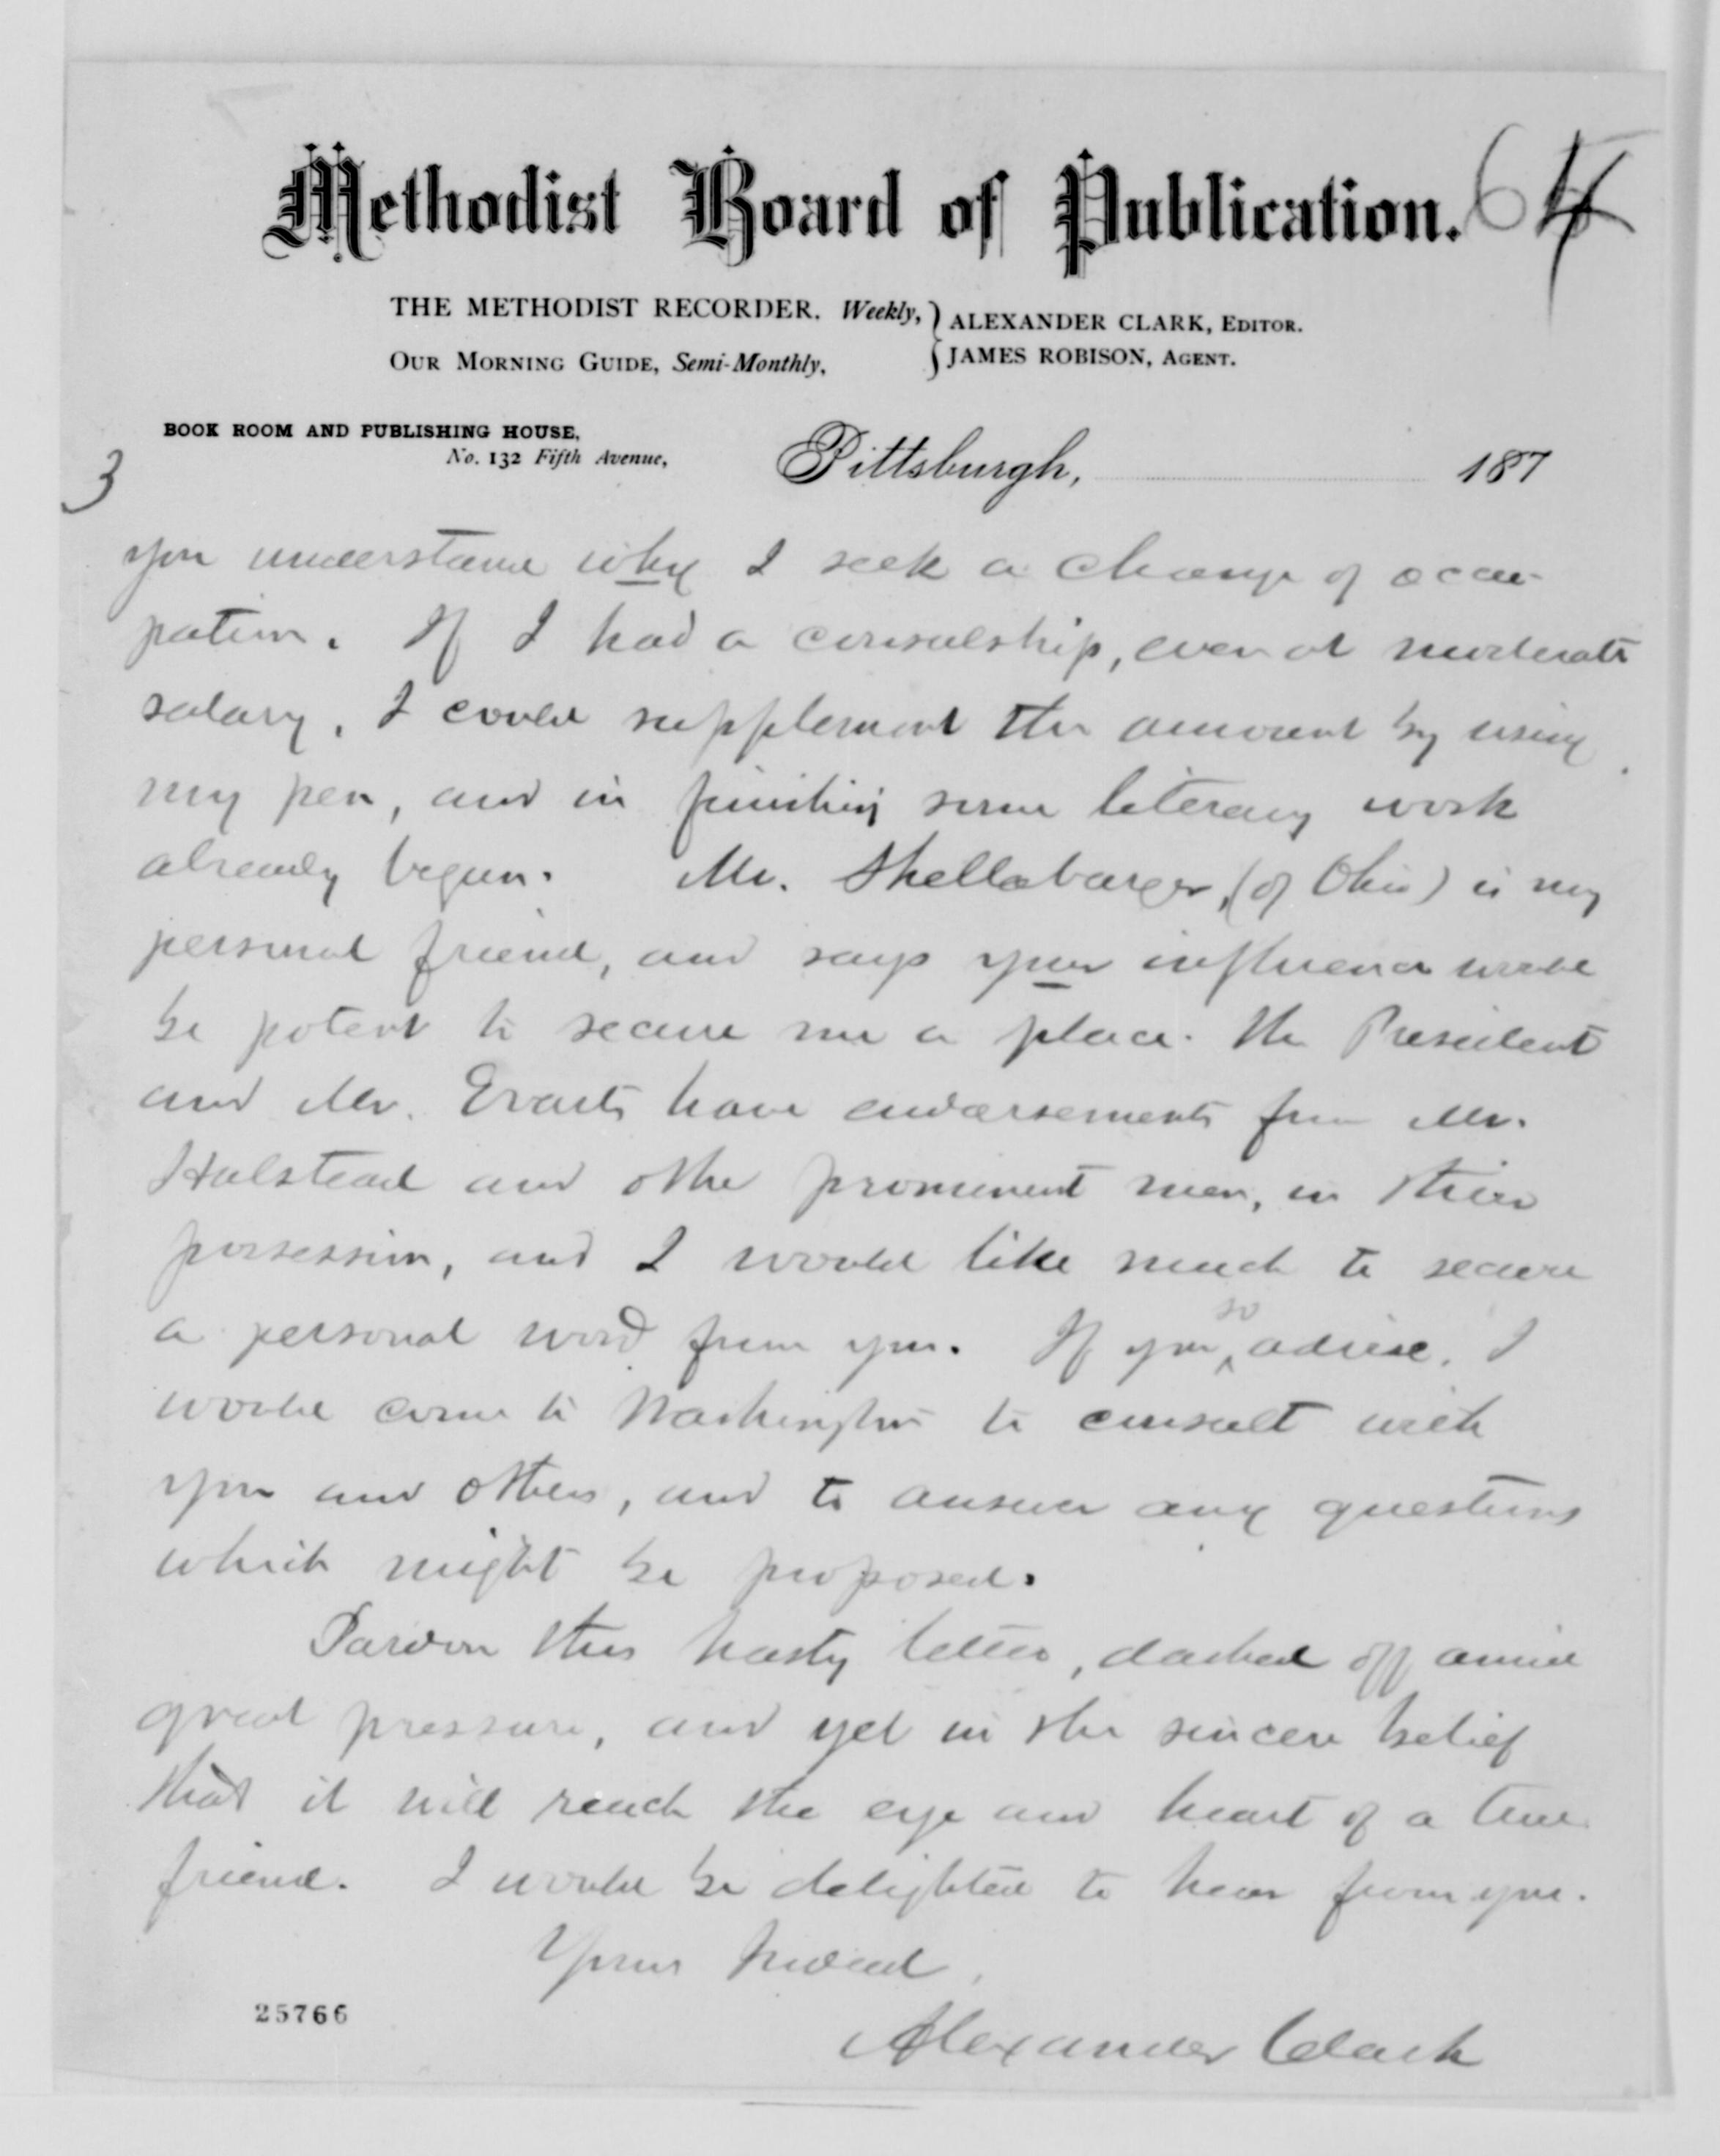 Methodist Board of Publication. 64
THE METHODIST RECORDER. Weekly, } ALEXANDER CLARK, EDITOR.
OUR MORNING GUIDE, Semi-Monthly, } JAMES ROBISON, AGENT.
BOOK ROOM AND PUBLISHING HOUSE,
No. 132 Fifth Avenue,
Pittsburgh, 187
3
you understand why I seek a change of occu-
pation. If I had a consulship, even at moderate
salary, I could supplement the amount by using
my pen, and in finishing some literary work
already begun. Mr. Shellabarger, (of Ohio) is my
personal friend, and says your influence would
be potent to secure me a place. The President
and Mr. Evarts have endorsements from Mr.
Halstead and other prominent men, in their
possession, and I would like much to secure
a personal word from you. If you so advise, I
would come to Washington to consult with
you and others, and to answer any questions
which might be proposed.
Pardon this hasty letter, dashed off amid
great pressure, and yet in the sincere belief
that it will reach the eye and heart of a true
friend. I would be delighted to hear from you.
Yours indeed,
Alexander Clark
25766